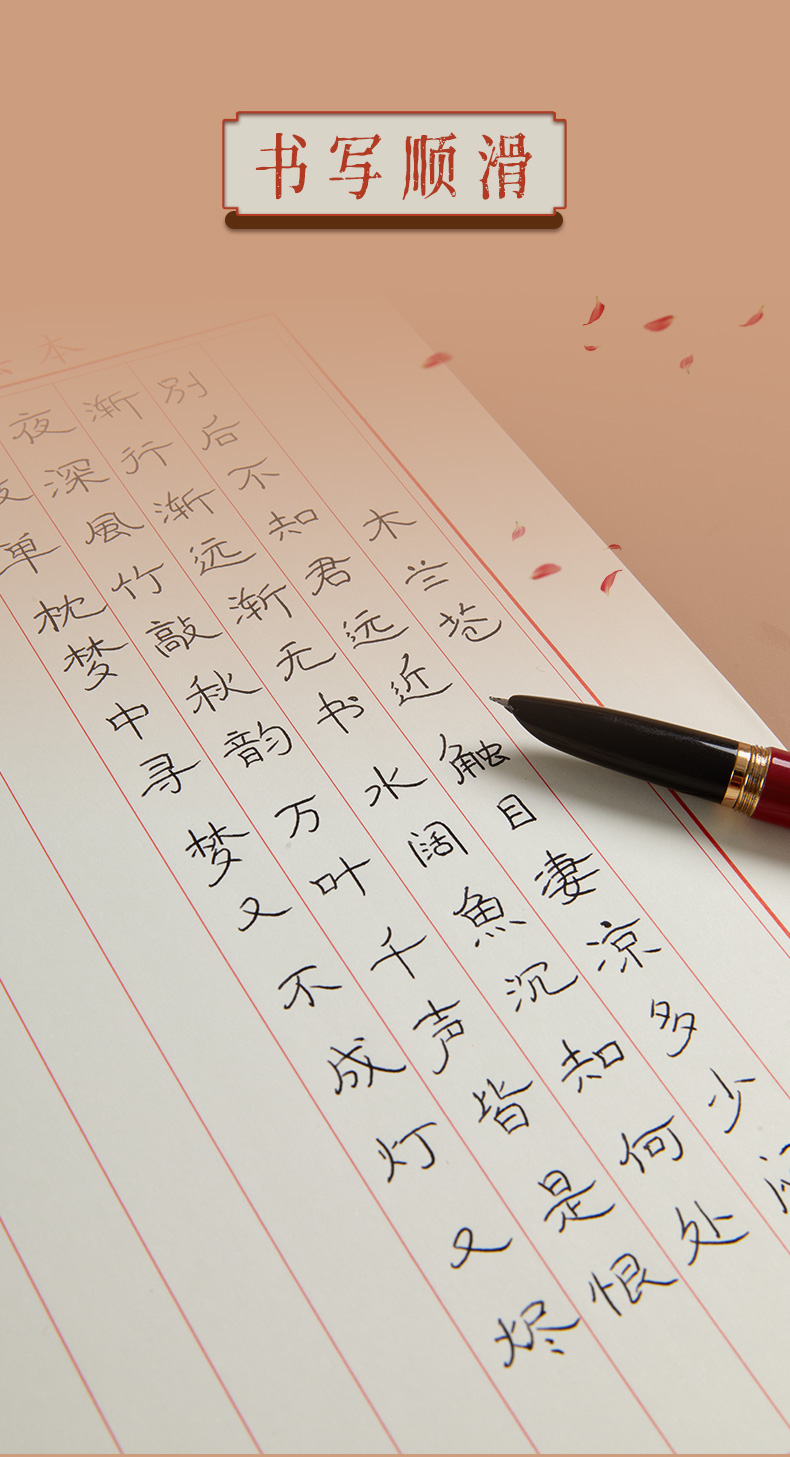 书写顺滑
本
木兰苍
别后不知君远近触目凄凉多少
渐行渐远渐无书水阔魚沉知何处
夜深風竹敲秋韵万叶千声皆是恨
单枕梦中寻梦又不成灯又烬